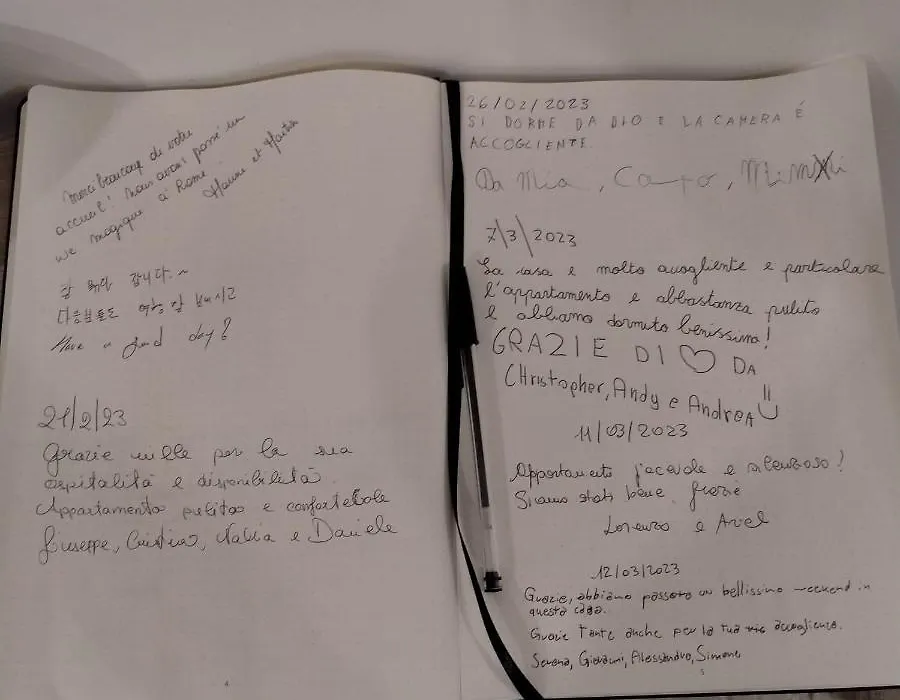 Merci beaucoup de votre
accueil! Nous avons passé un
we magique à Rome.
Hanne et
잘 갑니다.~
다음분들도 여행 잘 보내시고
Have a good day!
21/2/23
Grazie mille per la sua
ospitalità e disponibilità.
Appartamento pulito e confortebole
Giuseppe, Cristina, e Daniele
4
26/02/2023
SI DORME DA DIO E LA CAMERA É
ACCOGLIENTE.
Da Mia,
7/3/2023
La casa e molto accogliente e particolare
l'appartamento e abbastanza pulito
e abbiamo dormito benissimo!
GRAZIE DI ♡ DA
Christopher, Andy e Andrea
11/03/2023
Appartamento e silenzioso!
Siamo stati bene. Grazie
Lorenzo e
12/03/2023
Grazie, abbiamo passato un bellissimo weekend in
questa casa.
Grazie tante anche per la tua accoglienza.
Serena, Giovanni, Alessandro, Simone
5